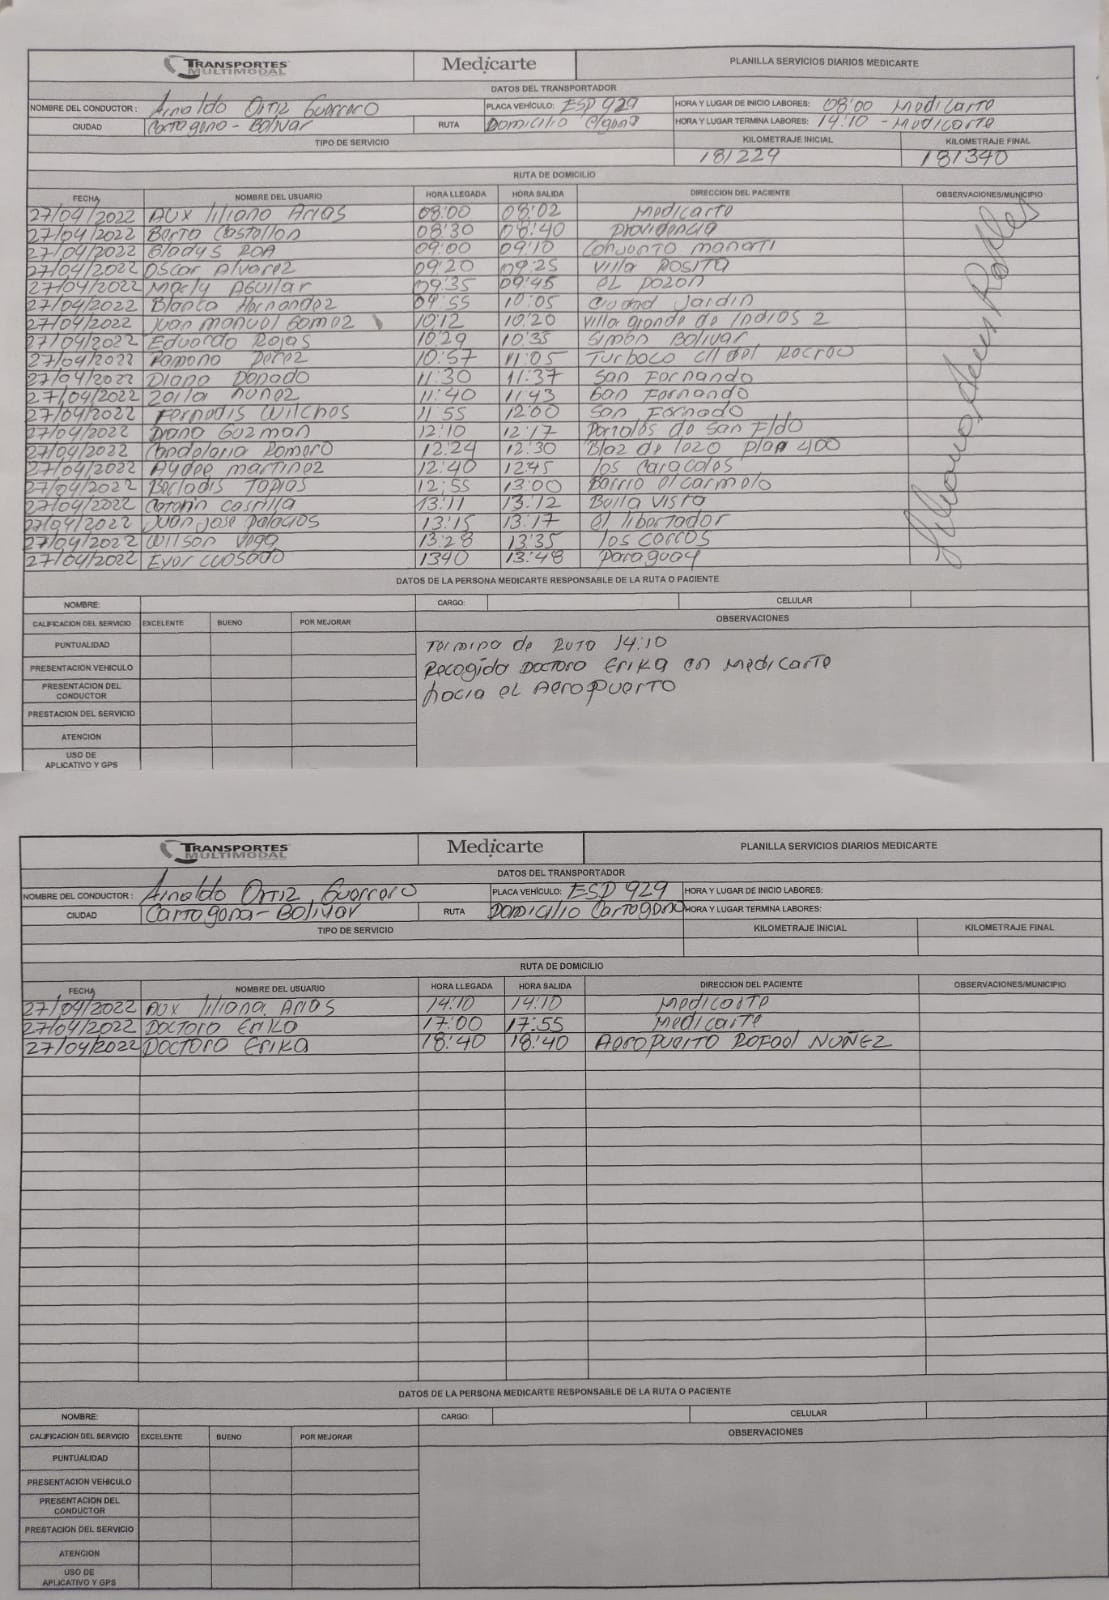 TRANSPORTES MULTIMODAL Medicarte PLANILLA SERVICIOS DIARIOS MEDICARTE
DATOS DEL TRANSPORTADOR
NOMBRE DEL CONDUCTOR: Arnaldo Ortiz Guerrero PLACA VEHÍCULO: ESD 929 HORA Y LUGAR DE INICIO LABORES: 08:00 Medicarte
CIUDAD Cartagena - Bolivar RUTA Domicilio C/gena HORA Y LUGAR TERMINA LABORES: 14:10 - Medicarte
TIPO DE SERVICIO KILOMETRAJE INICIAL KILOMETRAJE FINAL
181229 181340
RUTA DE DOMICILIO
FECHA NOMBRE DEL USUARIO HORA LLEGADA HORA SALIDA DIRECCION DEL PACIENTE OBSERVACIONES/MUNICIPIO
27/04/2022 Aux liliana Arias 08:00 08:02 Medicarte
27/04/2022 Berta Castellon 08:30 08:40 Providencia
27/04/2022 Gladys ROA 09:00 09:10 Conjunto manati
27/04/2022 Oscar Alvarez 09:20 09:25 Villa Rosita
27/04/2022 Maely Aguilar 09:35 09:45 el pozon
27/04/2022 Blanca Hernandez 09:55 10:05 Ciudad Jardin
27/04/2022 Juan manuel Gomez 10:12 10:20 Villa grande de Indios 2
27/04/2022 Eduardo Rojas 10:29 10:35 Simon Bolivar
27/04/2022 Ramona Perez 10:57 11:05 Turbaco Cll del Recreo
27/04/2022 Diana Donado 11:30 11:37 San Fernando
27/04/2022 Zoila nuñez 11:40 11:43 San Fernando
27/04/2022 Fernedis Wilches 11:55 12:00 San Fernado
27/04/2022 Diana Guzman 12:10 12:17 Portales de San Fdo
27/04/2022 Candelaria Romero 12:24 12:30 Blaz de lezo plan 400
27/04/2022 Aydee martinez 12:40 1245 los Caracoles
27/04/2022 Becladis Tapias 12:55 13:00 Barrio el carmelo
27/04/2022 Catorin casrilla 13:11 13:12 Bella Vista
27/04/2022 Juan Jose palacios 13:15 13:17 el libertador
27/04/2022 Wilson Vega 13:28 13:35 los cerros
27/04/2022 Ever 1340 13:48 Paraguay
DATOS DE LA PERSONA MEDICARTE RESPONSABLE DE LA RUTA O PACIENTE
NOMBRE: CARGO: CELULAR
CALIFICACION DEL SERVICIO EXCELENTE BUENO POR MEJORAR OBSERVACIONES
PUNTUALIDAD Termina de Ruta 14:10
PRESENTACION VEHICULO Recogida Doctora Erika en Medicarte
PRESENTACION DEL CONDUCTOR hacia el Aeropuerto
PRESTACION DEL SERVICIO
ATENCION
USO DE APLICATIVO Y GPS
TRANSPORTES MULTIMODAL Medicarte PLANILLA SERVICIOS DIARIOS MEDICARTE
DATOS DEL TRANSPORTADOR
NOMBRE DEL CONDUCTOR: Arnaldo Ortiz Guerrero PLACA VEHÍCULO: ESD 929 HORA Y LUGAR DE INICIO LABORES:
CIUDAD Cartagena - Bolivar RUTA Domicilio Cartagena HORA Y LUGAR TERMINA LABORES:
TIPO DE SERVICIO KILOMETRAJE INICIAL KILOMETRAJE FINAL
RUTA DE DOMICILIO
FECHA NOMBRE DEL USUARIO HORA LLEGADA HORA SALIDA DIRECCION DEL PACIENTE OBSERVACIONES/MUNICIPIO
27/04/2022 Aux liliana Arias 14:10 14:10 Medicarte
27/04/2022 Doctora Erika 17:00 17:55 Medicarte
27/04/2022 Doctora Erika 18:40 18:40 Aeropuerto Rafael NUÑEZ
DATOS DE LA PERSONA MEDICARTE RESPONSABLE DE LA RUTA O PACIENTE
NOMBRE: CARGO: CELULAR
CALIFICACION DEL SERVICIO EXCELENTE BUENO POR MEJORAR OBSERVACIONES
PUNTUALIDAD
PRESENTACION VEHICULO
PRESENTACION DEL CONDUCTOR
PRESTACION DEL SERVICIO
ATENCION
USO DE APLICATIVO Y GPS